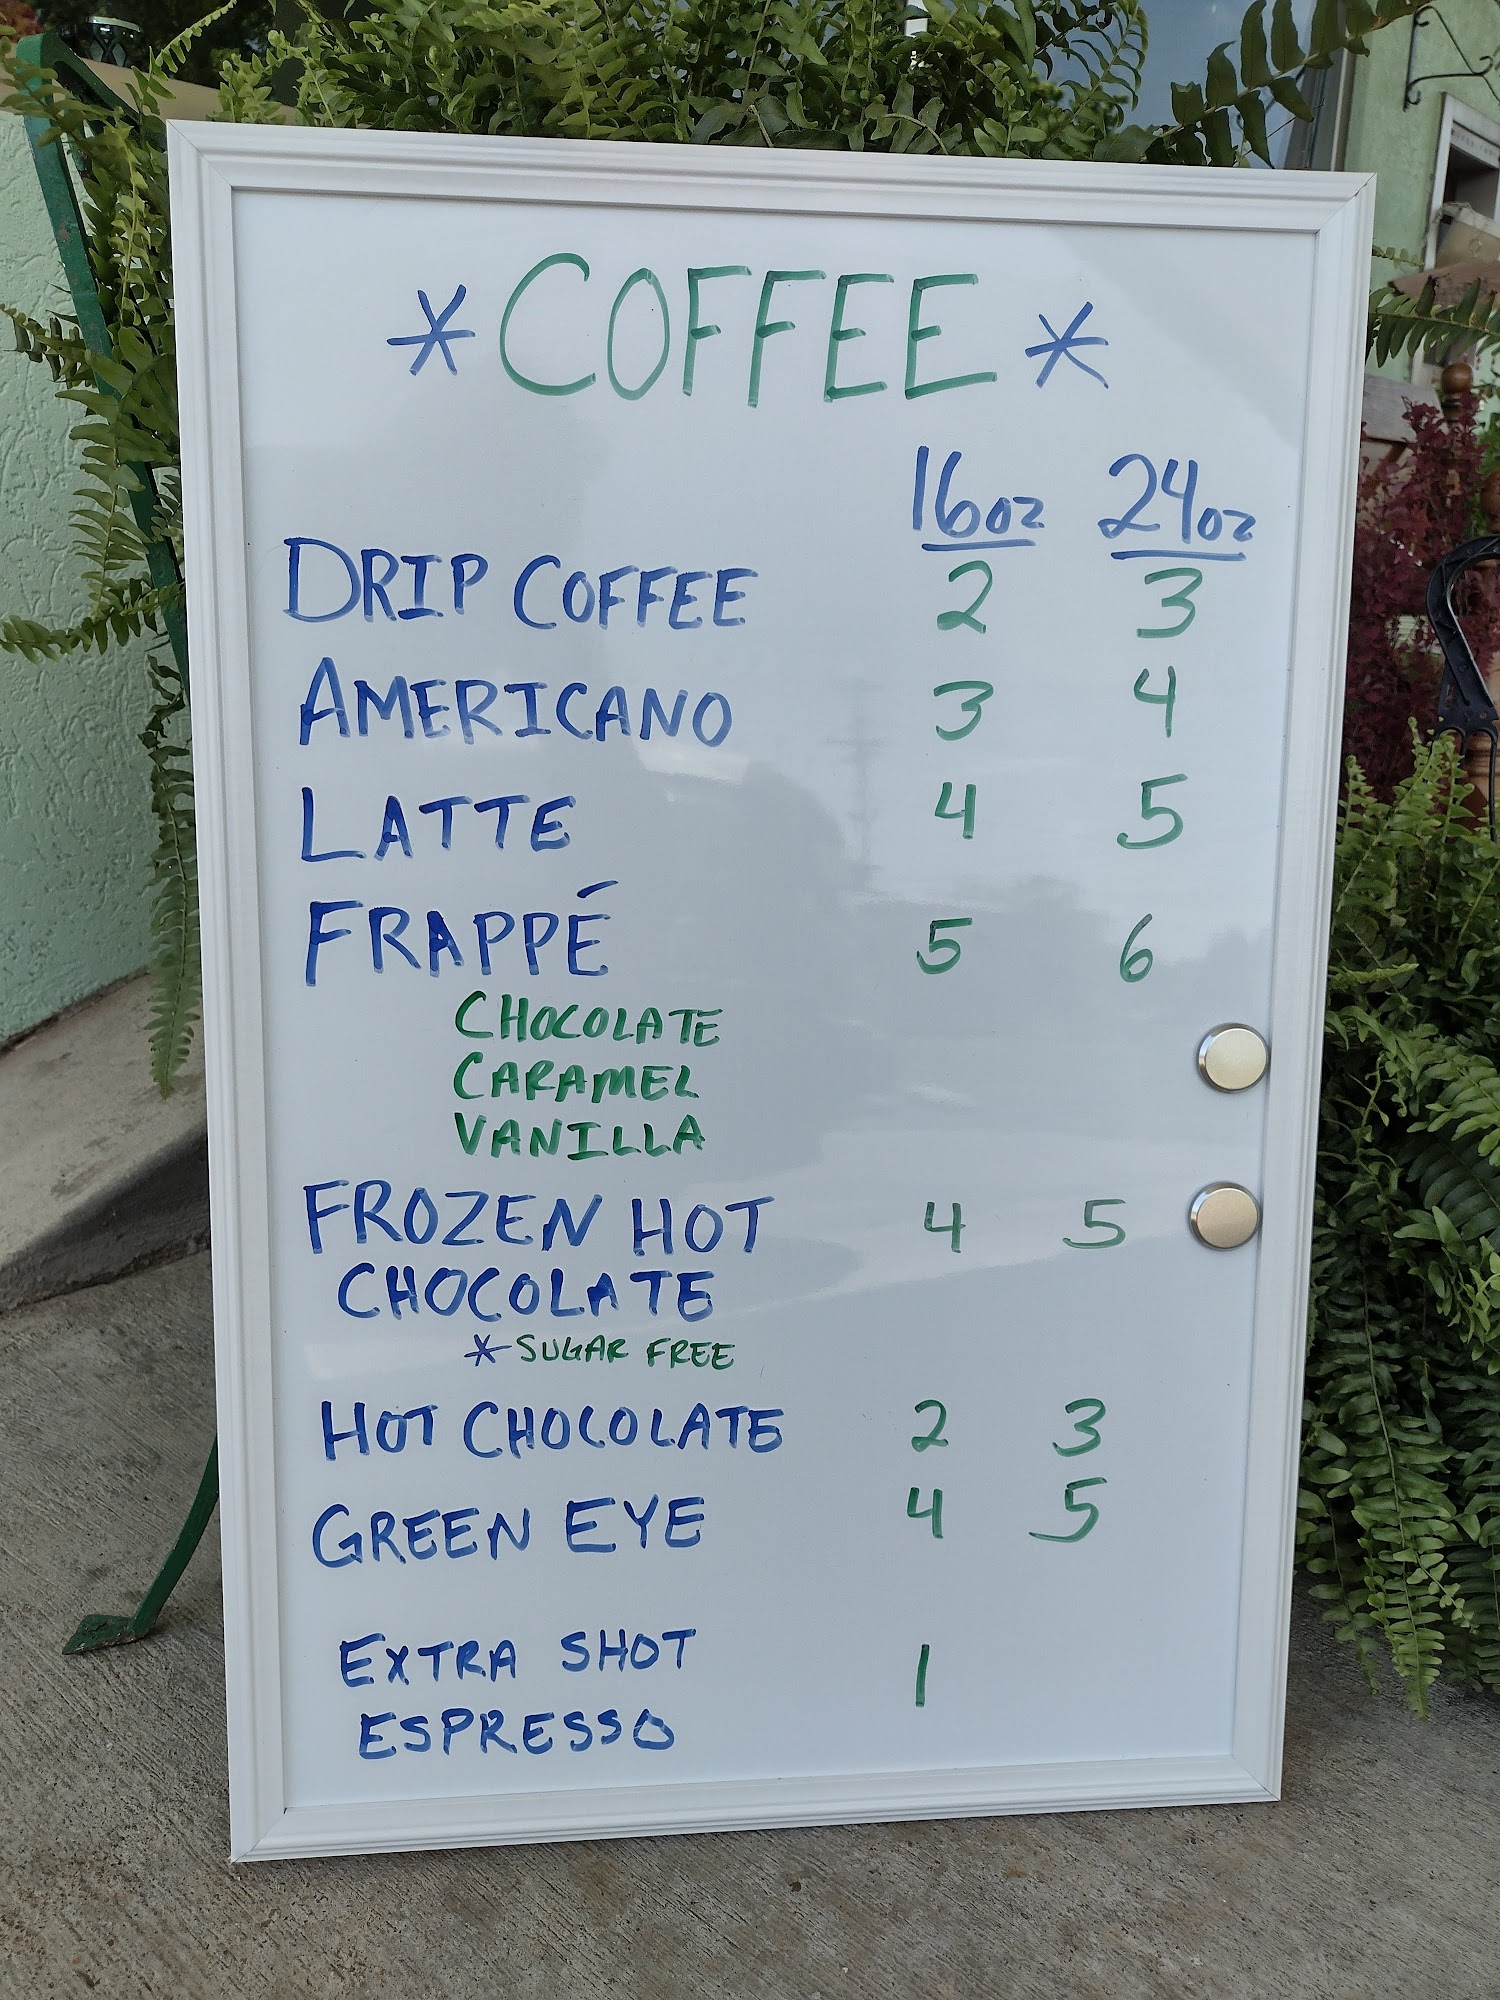 * COFFEE *
16oz 24oz
DRIP COFFEE 2 3
AMERICANO 3 4
LATTE 4 5
FRAPPÉ 5 6
CHOCOLATE
CARAMEL
VANILLA
FROZEN HOT 4 5
CHOCOLATE
*SUGAR FREE
HOT CHOCOLATE 2 3
GREEN EYE 4 5
EXTRA SHOT 1
ESPRESSO